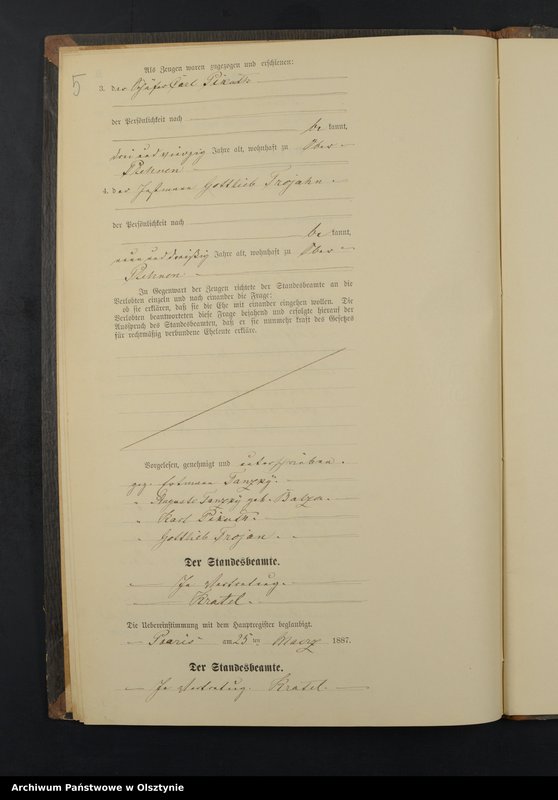 5
Als Zeugen waren zugezogen und erschienen:
3. der Schäfer Carl
der Persönlichkeit nach
be kannt,
drei und vierzig Jahre alt, wohnhaft zu Ober-
4. der Instmann Gottlieb Trojahn
der Persönlichkeit nach
be kannt,
neun und dreißig Jahre alt, wohnhaft zu Ober-
In Gegenwart der Zeugen richtete der Standesbeamte an die
Verlobten einzeln und nach einander die Frage:
ob sie erklären, daß sie die Ehe mit einander eingehen wollen. Die
Verlobten beantworteten diese Frage bejahend und erfolgte hierauf der
Ausspruch des Standesbeamten, daß er sie nunmehr kraft des Gesetzes
für rechtmäßig verbundene Eheleute erkläre.
Vorgelesen, genehmigt und unterschrieben.
gez.
Auguste geb.
Karl
Gottlieb Trojan.
Der Standesbeamte.
In Vertretung.
Kratel.
Die Uebereinstimmung mit dem Hauptregister beglaubigt.
am 25 ten Maerz 1887.
Der Standesbeamte.
In Vertretung. Kratel.
Archiwum Państwowe w Olsztynie